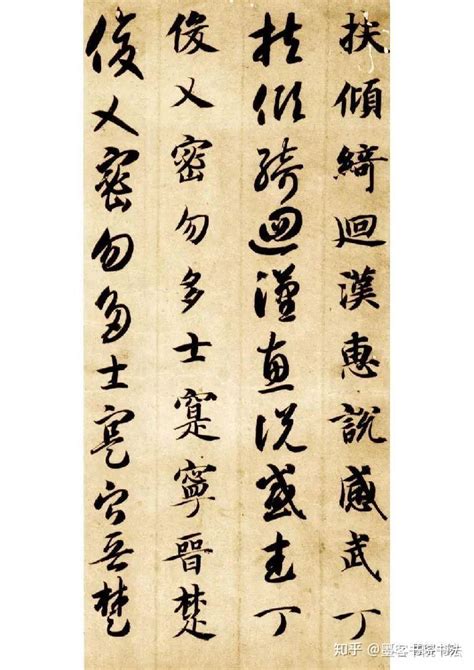 扶傾綺迴漢惠說感武丁
扶傾綺迴漢惠說感武丁
俊乂密勿多士寔寧晉楚
俊乂密勿多士寔寧晉楚
知乎